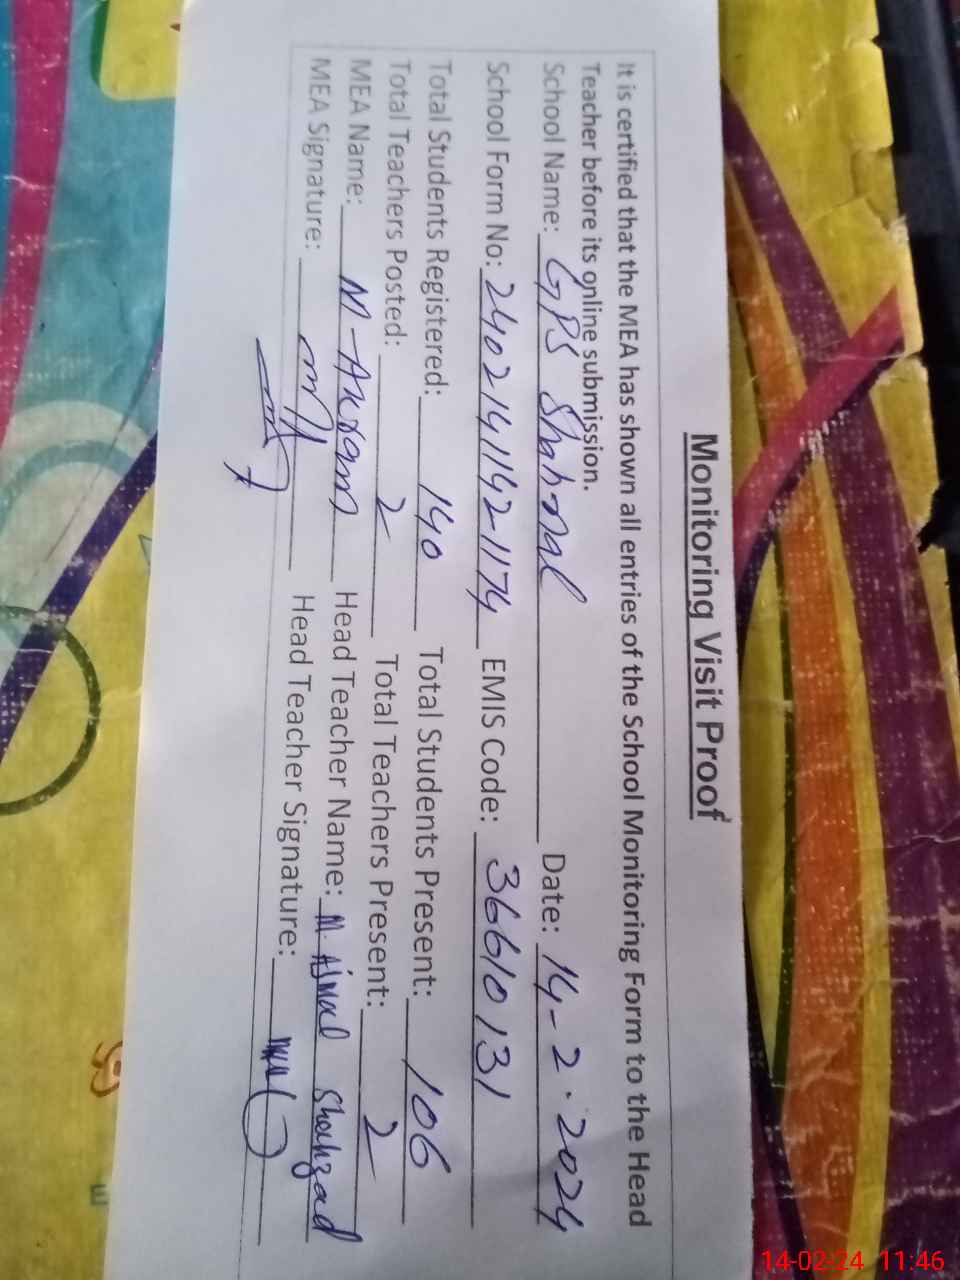 Monitoring Visit Proof
It is certified that the MEA has shown all entries of the School Monitoring Form to the Head
Teacher before its online submission.
School Name: GPS Shahnal Date: 14-2-2024
School Form No: 2402141142-1174 EMIS Code: 36610131
Total Students Registered: 140 Total Students Present: 106
Total Teachers Posted: 2 Total Teachers Present: 2
MEA Name: M-Akram Head Teacher Name: M. Ajmal Shahzad
MEA Signature: Head Teacher Signature:
14-02-24 11:46